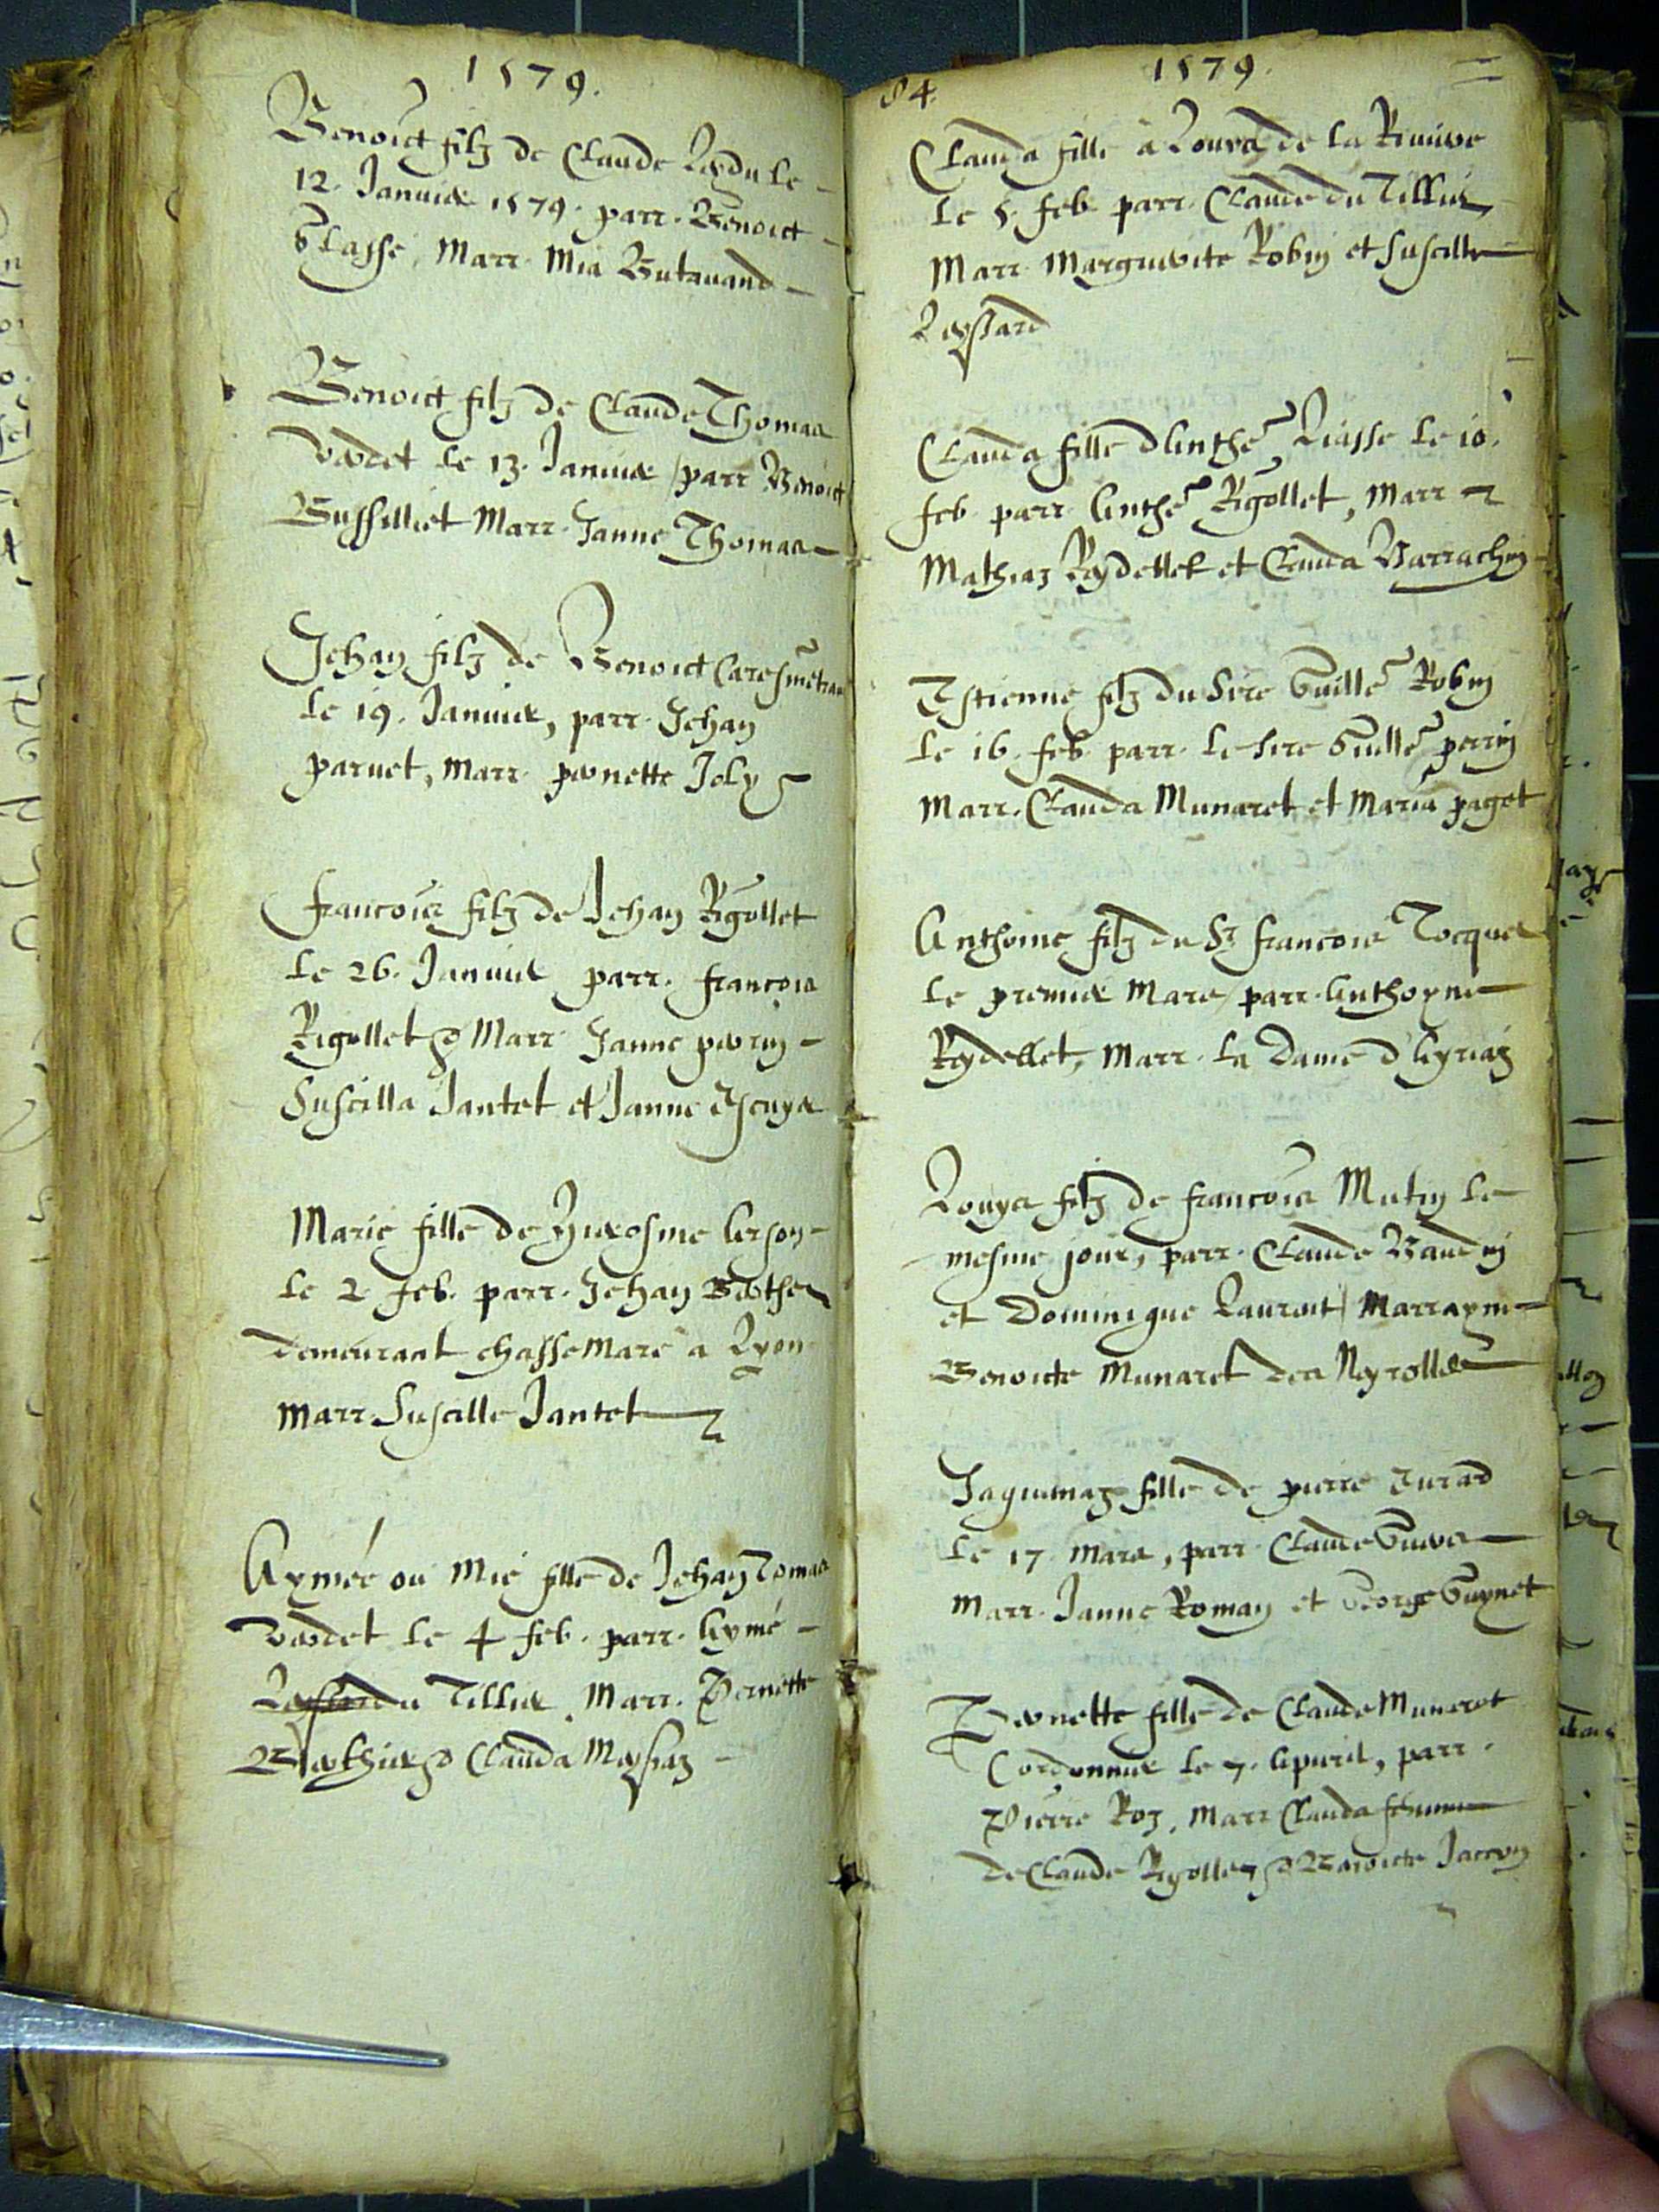 1579.
Benoict filz de Claude Leydu le
12. Januier 1579. parr. Benoict
Glasse, Marr. Mia Butauand
Benoict filz de Claude Thomas
Verdet le 13. Januier parr Benoict
Bussilliet Marr. Janne Thomas
Jehan filz de Benoict Caresmetran
le 19. Januier, parr. Jehan
paruet, Marr. pernette Joly
francois filz de Jehan Rigollet
le 26. Januier parr. francois
Rigollet & Marr. Janne perrin
Suscilla Jantet et Janne Escuyer
Marie fille de Hierosme Cerson
le 2 feb. parr. Jehan Berthet
demeurant chasse Mare a Lyon
Marr. Suscille Jantet
Aymée ou Mie fille de Jehan Tomas
Verdet le 4 feb. parr. Aymé
du Tillier. Marr. Pernette
Berthier & Clauda Meysiaz
84.
1579.
Clauda fille a Lours de la Riuiere
le 5. feb. parr. Claude du Tillier
Marr. Marguerite Robin et Suscille
Leyssard
Clauda fille d'Anthe Liasse le 10.
feb. parr. Anthe Rigollet, Marr
Mathiaz Reydellet et Clauda Barrachin
Estienne filz du Sire Guille Robin
le 16. feb. parr. le Sire Guille perrin
Marr. Clauda Munaret et Maria paget
Anthoine filz du Sr francois Tocquet
le premier Mars parr. Anthoyne
Reydellet, Marr. la Dame d'Ayriaz
Louys filz de francois Mutin le
mesme jour, parr. Claude Baudin
et Dominique Laurent Marrayne
Benoicte Munaret des Neyrolles
Jaquemaz fille de pierre Jurad
le 17. mars, parr. Claude
Marr. Janne Roman et George Guynet
Pernette fille de Claude Muneret
Cordonnier le 7. Apuril, parr.
Pierre Roz, Marr Clauda femme
de Claude Rigollet & Benoicte Jarron